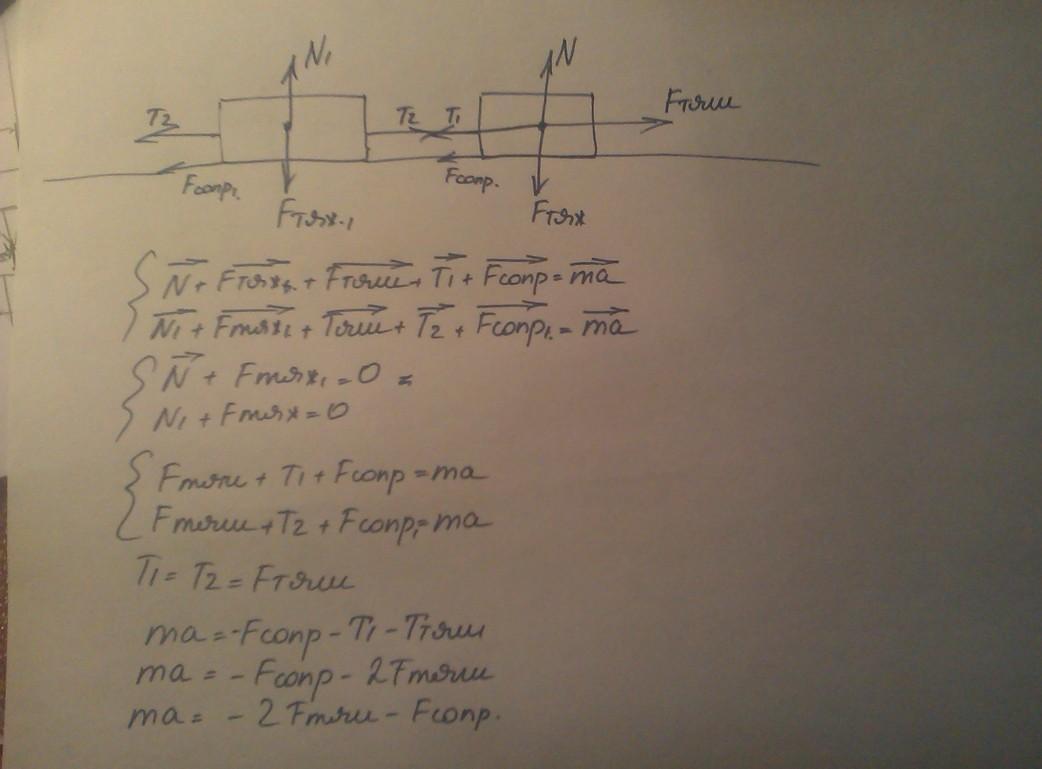 N₁ N
T₂ T₂ T₁ Fтяги
Fсопр₁ Fсопр.
Fтяж.₁ Fтяж
N + Fтяж + Fтяги + T₁ + Fсопр = ma
N₁ + Fтяж₁ + Tтяги + T₂ + Fсопр₁ = ma
N + Fтяж₁ = 0 =
N₁ + Fтяж = 0
Fтяги + T₁ + Fсопр = ma
Fтяги + T₂ + Fсопр₁ = ma
T₁ = T₂ = Fтяги
ma = -Fсопр - T₁ - Tтяги
ma = - Fсопр - 2Fтяги
ma = - 2Fтяги - Fсопр.